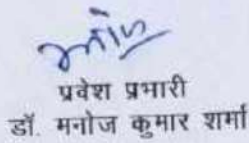 प्रवेश प्रभारी
डॉ. मनोज कुमार शर्मा